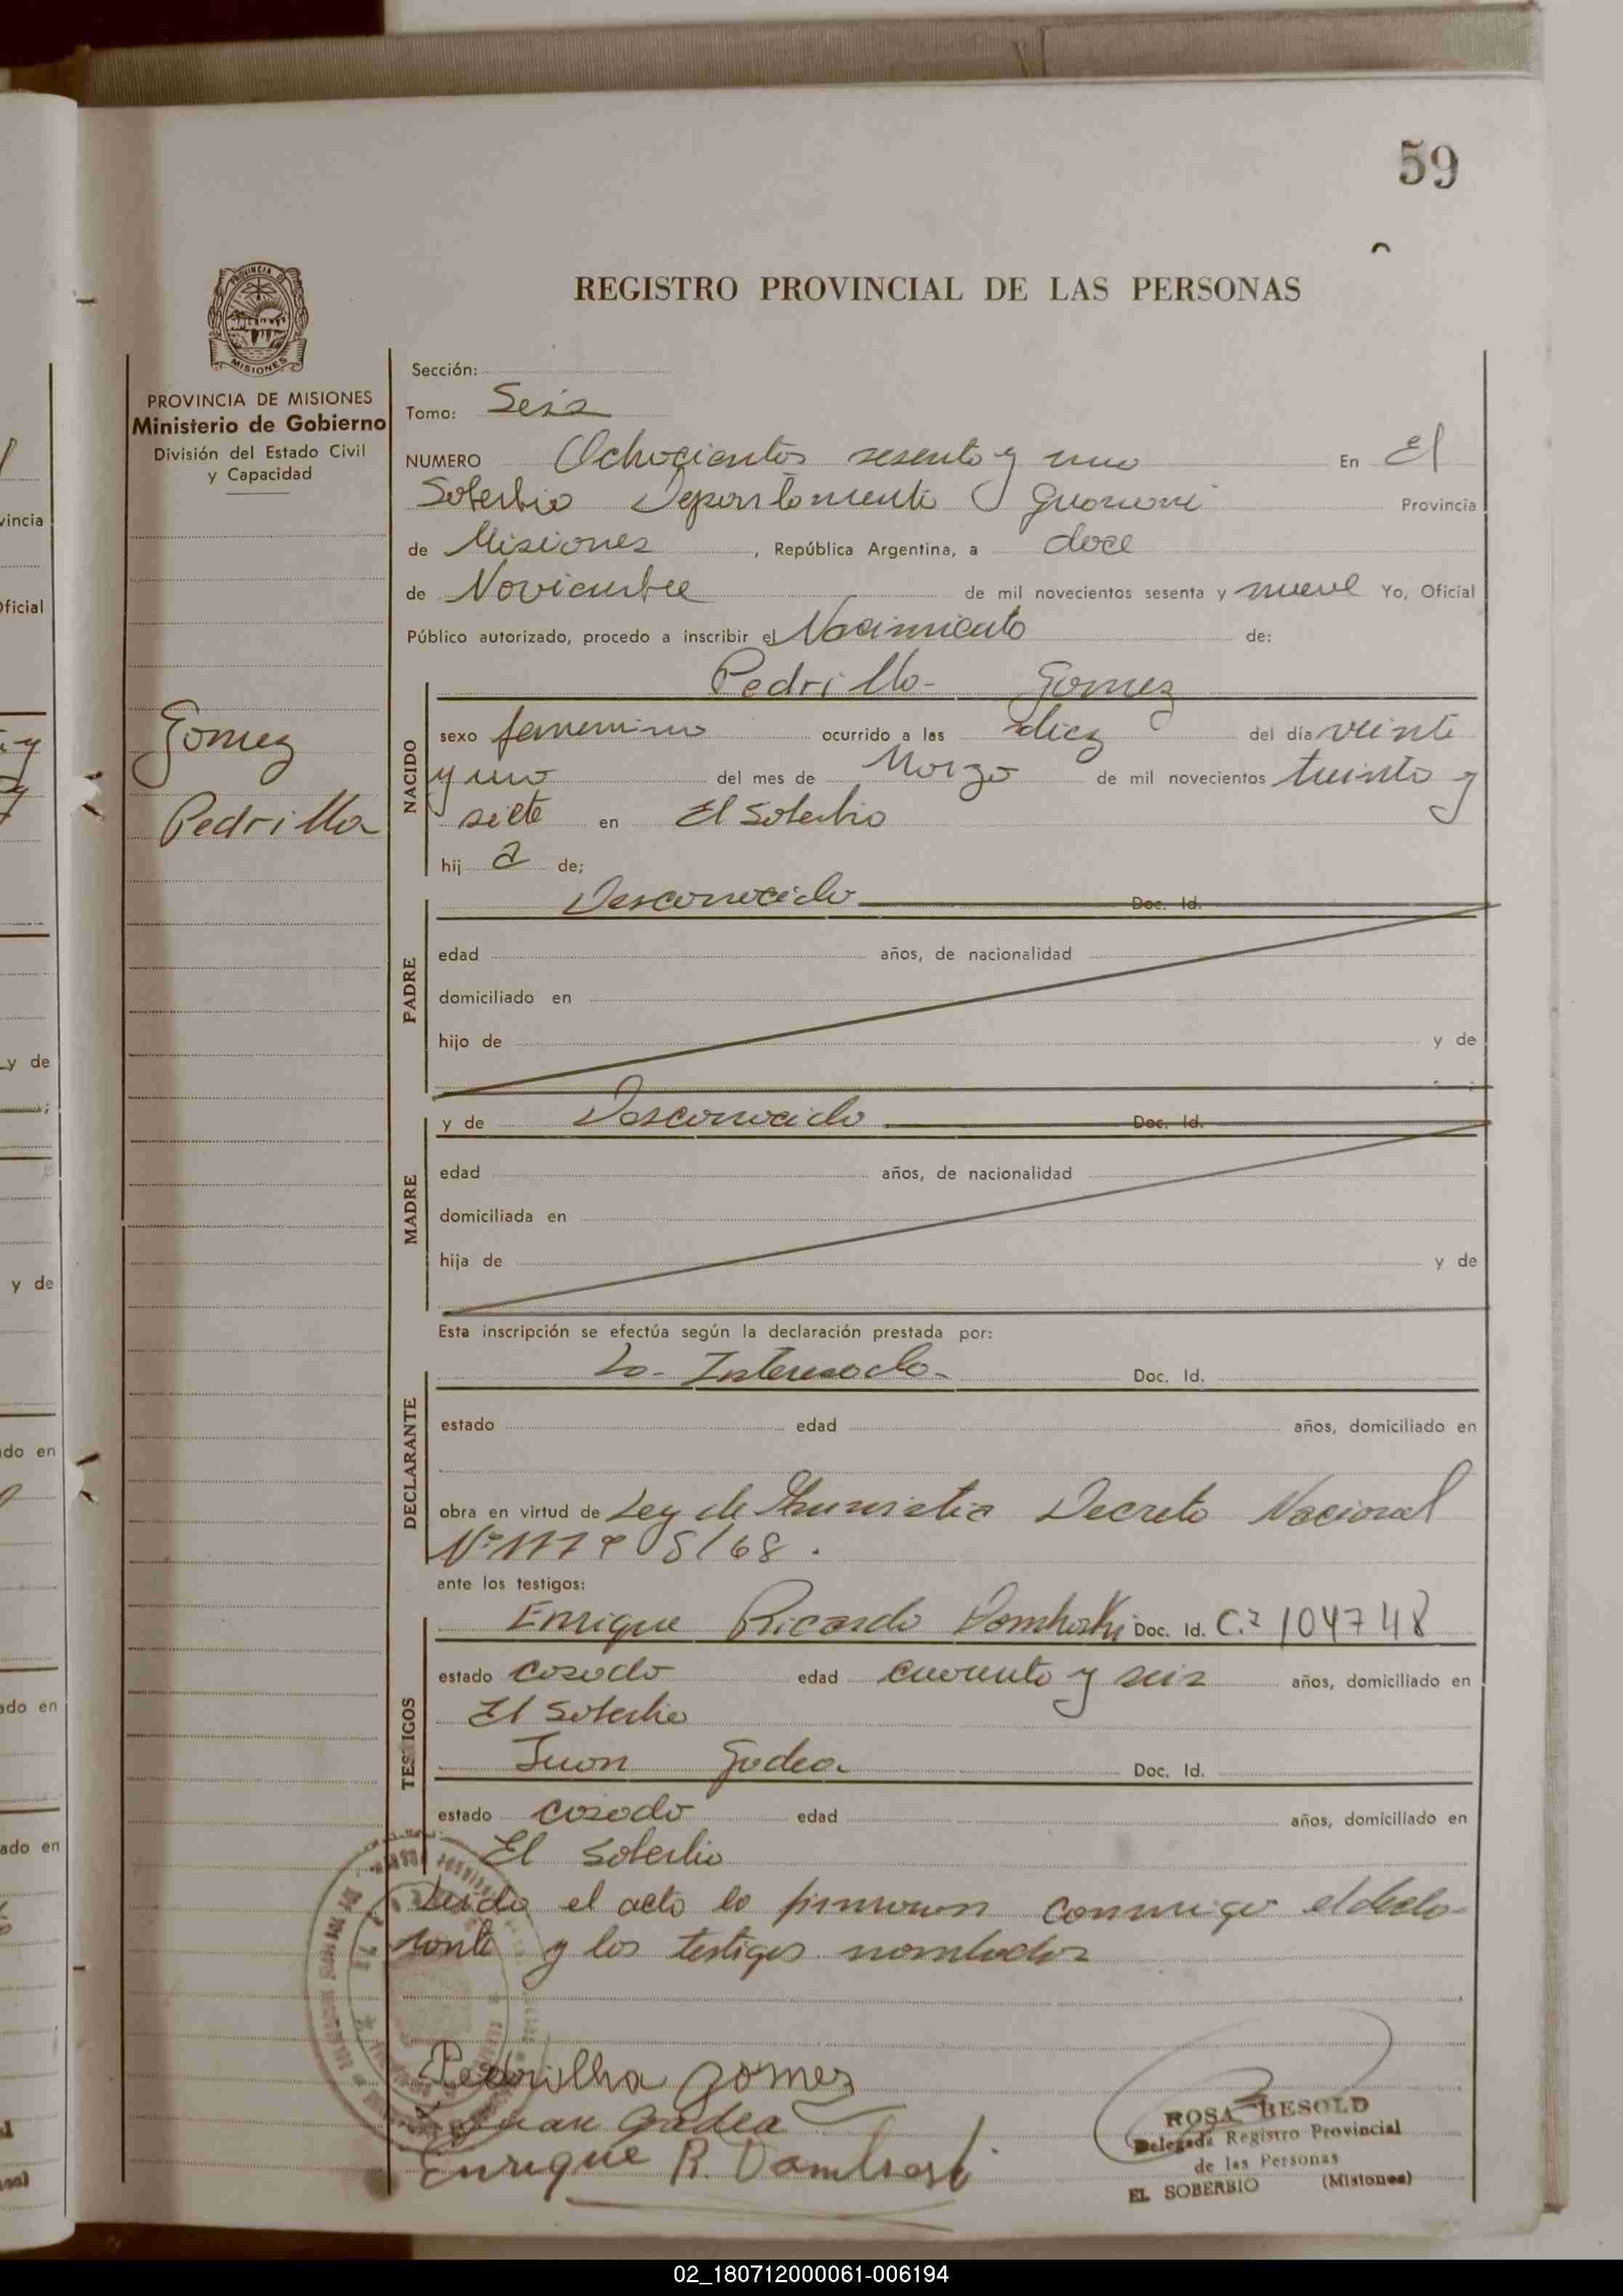 59
REGISTRO PROVINCIAL DE LAS PERSONAS
PROVINCIA DE
MISIONES
PROVINCIA DE MISIONES
Ministerio de Gobierno
División del Estado Civil
y Capacidad
Gomez
Pedrilla
Sección:
Tomo: Seis
NUMERO Ochocientos sesenta y uno En El
Soberbio Departamento Guarani Provincia
de Misiones, República Argentina, a doce
de Noviembre de mil novecientos sesenta y nueve Yo, Oficial
Público autorizado, procedo a inscribir el Nacimiento de:
Pedrilla- Gomez
NACIDO
sexo femenino ocurrido a las diez del día veinte
y uno del mes de Marzo de mil novecientos treinta y
siete en El Soberbio
hij a de;
PADRE
Desconocido Doc. Id.
edad años, de nacionalidad
domiciliado en
hijo de y de
MADRE
y de Desconocido Doc. Id.
edad años, de nacionalidad
domiciliada en
hija de y de
Esta inscripción se efectúa según la declaración prestada por:
DECLARANTE
La- Interesada- Doc. Id.
estado edad años, domiciliado en
obra en virtud de Ley de Decreto Nacional
ante los testigos:
TESTIGOS
Enrique Ricardo Doc. Id. 104748
estado casado edad cuarenta y seis años, domiciliado en
El Soberbio
Juan Gadea Doc. Id.
estado casado edad años, domiciliado en
El Soberbio
Leida el acta la firmaron conmigo el decla-
rante y los testigos nombrados
Pedrilha gomez
Juan Gadea
Enrique R.
ROSA BESOLD
Delegada Registro Provincial
de las Personas
EL SOBERBIO (Misiones)
02_180712000061-006194